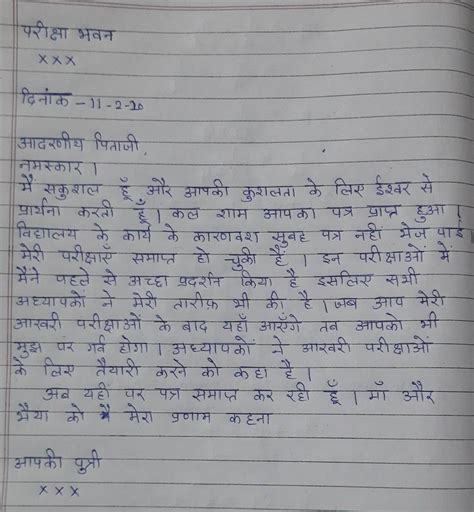 परीक्षा भवन
x x x
दिनांक - 11-2-20
आदरणीय पिताजी,
नमस्कार।
मैं सकुशल हूँ और आपकी कुशलता के लिए ईश्वर से
प्रार्थना करती हूँ। कल शाम आपका पत्र प्राप्त हुआ।
विद्यालय के कार्य के कारणवश सुबह पत्र नहीं भेज पाई।
मेरी परीक्षाएँ समाप्त हो चुकी हैं। इन परीक्षाओं में
मैंने पहले से अच्छा प्रदर्शन किया है इसलिए सभी
अध्यापकों ने मेरी तारीफ़ भी की है। जब आप मेरी
आखरी परीक्षाओं के बाद यहाँ आएँगे तब आपको भी
मुझ पर गर्व होगा। अध्यापकों ने आखरी परीक्षाओं
के लिए तैयारी करने को कहा है।
अब यही पर पत्र समाप्त कर रही हूँ। माँ और
भैया को मेरा प्रणाम कहना
आपकी पुत्री
x x x